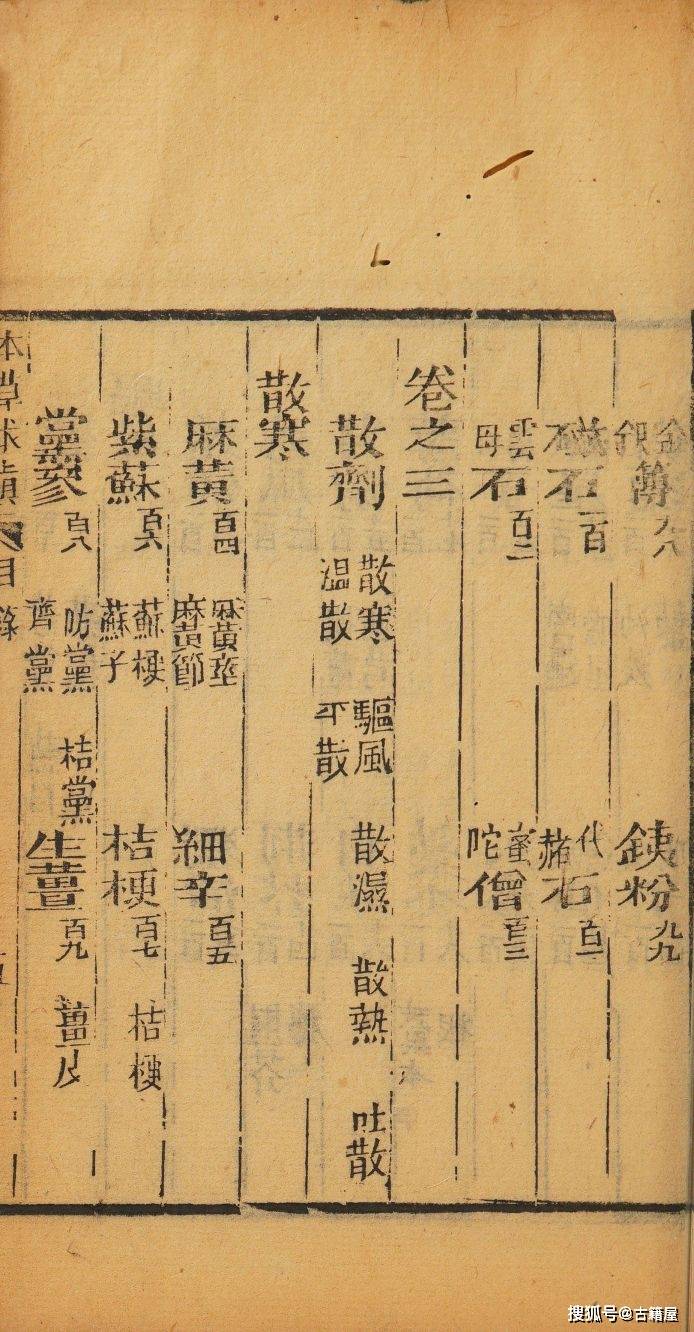 金銀簿九八 銕粉九九
磁石一百 代赭石百一
雲母石百二 蜜咜僧百三
卷之三
散劑 散寒 溫散 驅風 平散 散濕 散熱 吐散
散寒
麻黃百四 麻黃莖 麻黃節 細辛百五
紫蘇百六 蘇梗 蘇子 桔梗百七 桔梗
黨參百八 防黨 齊黨 桔黨 生薑百九 薑皮
目錄
搜狐号@古籍屋